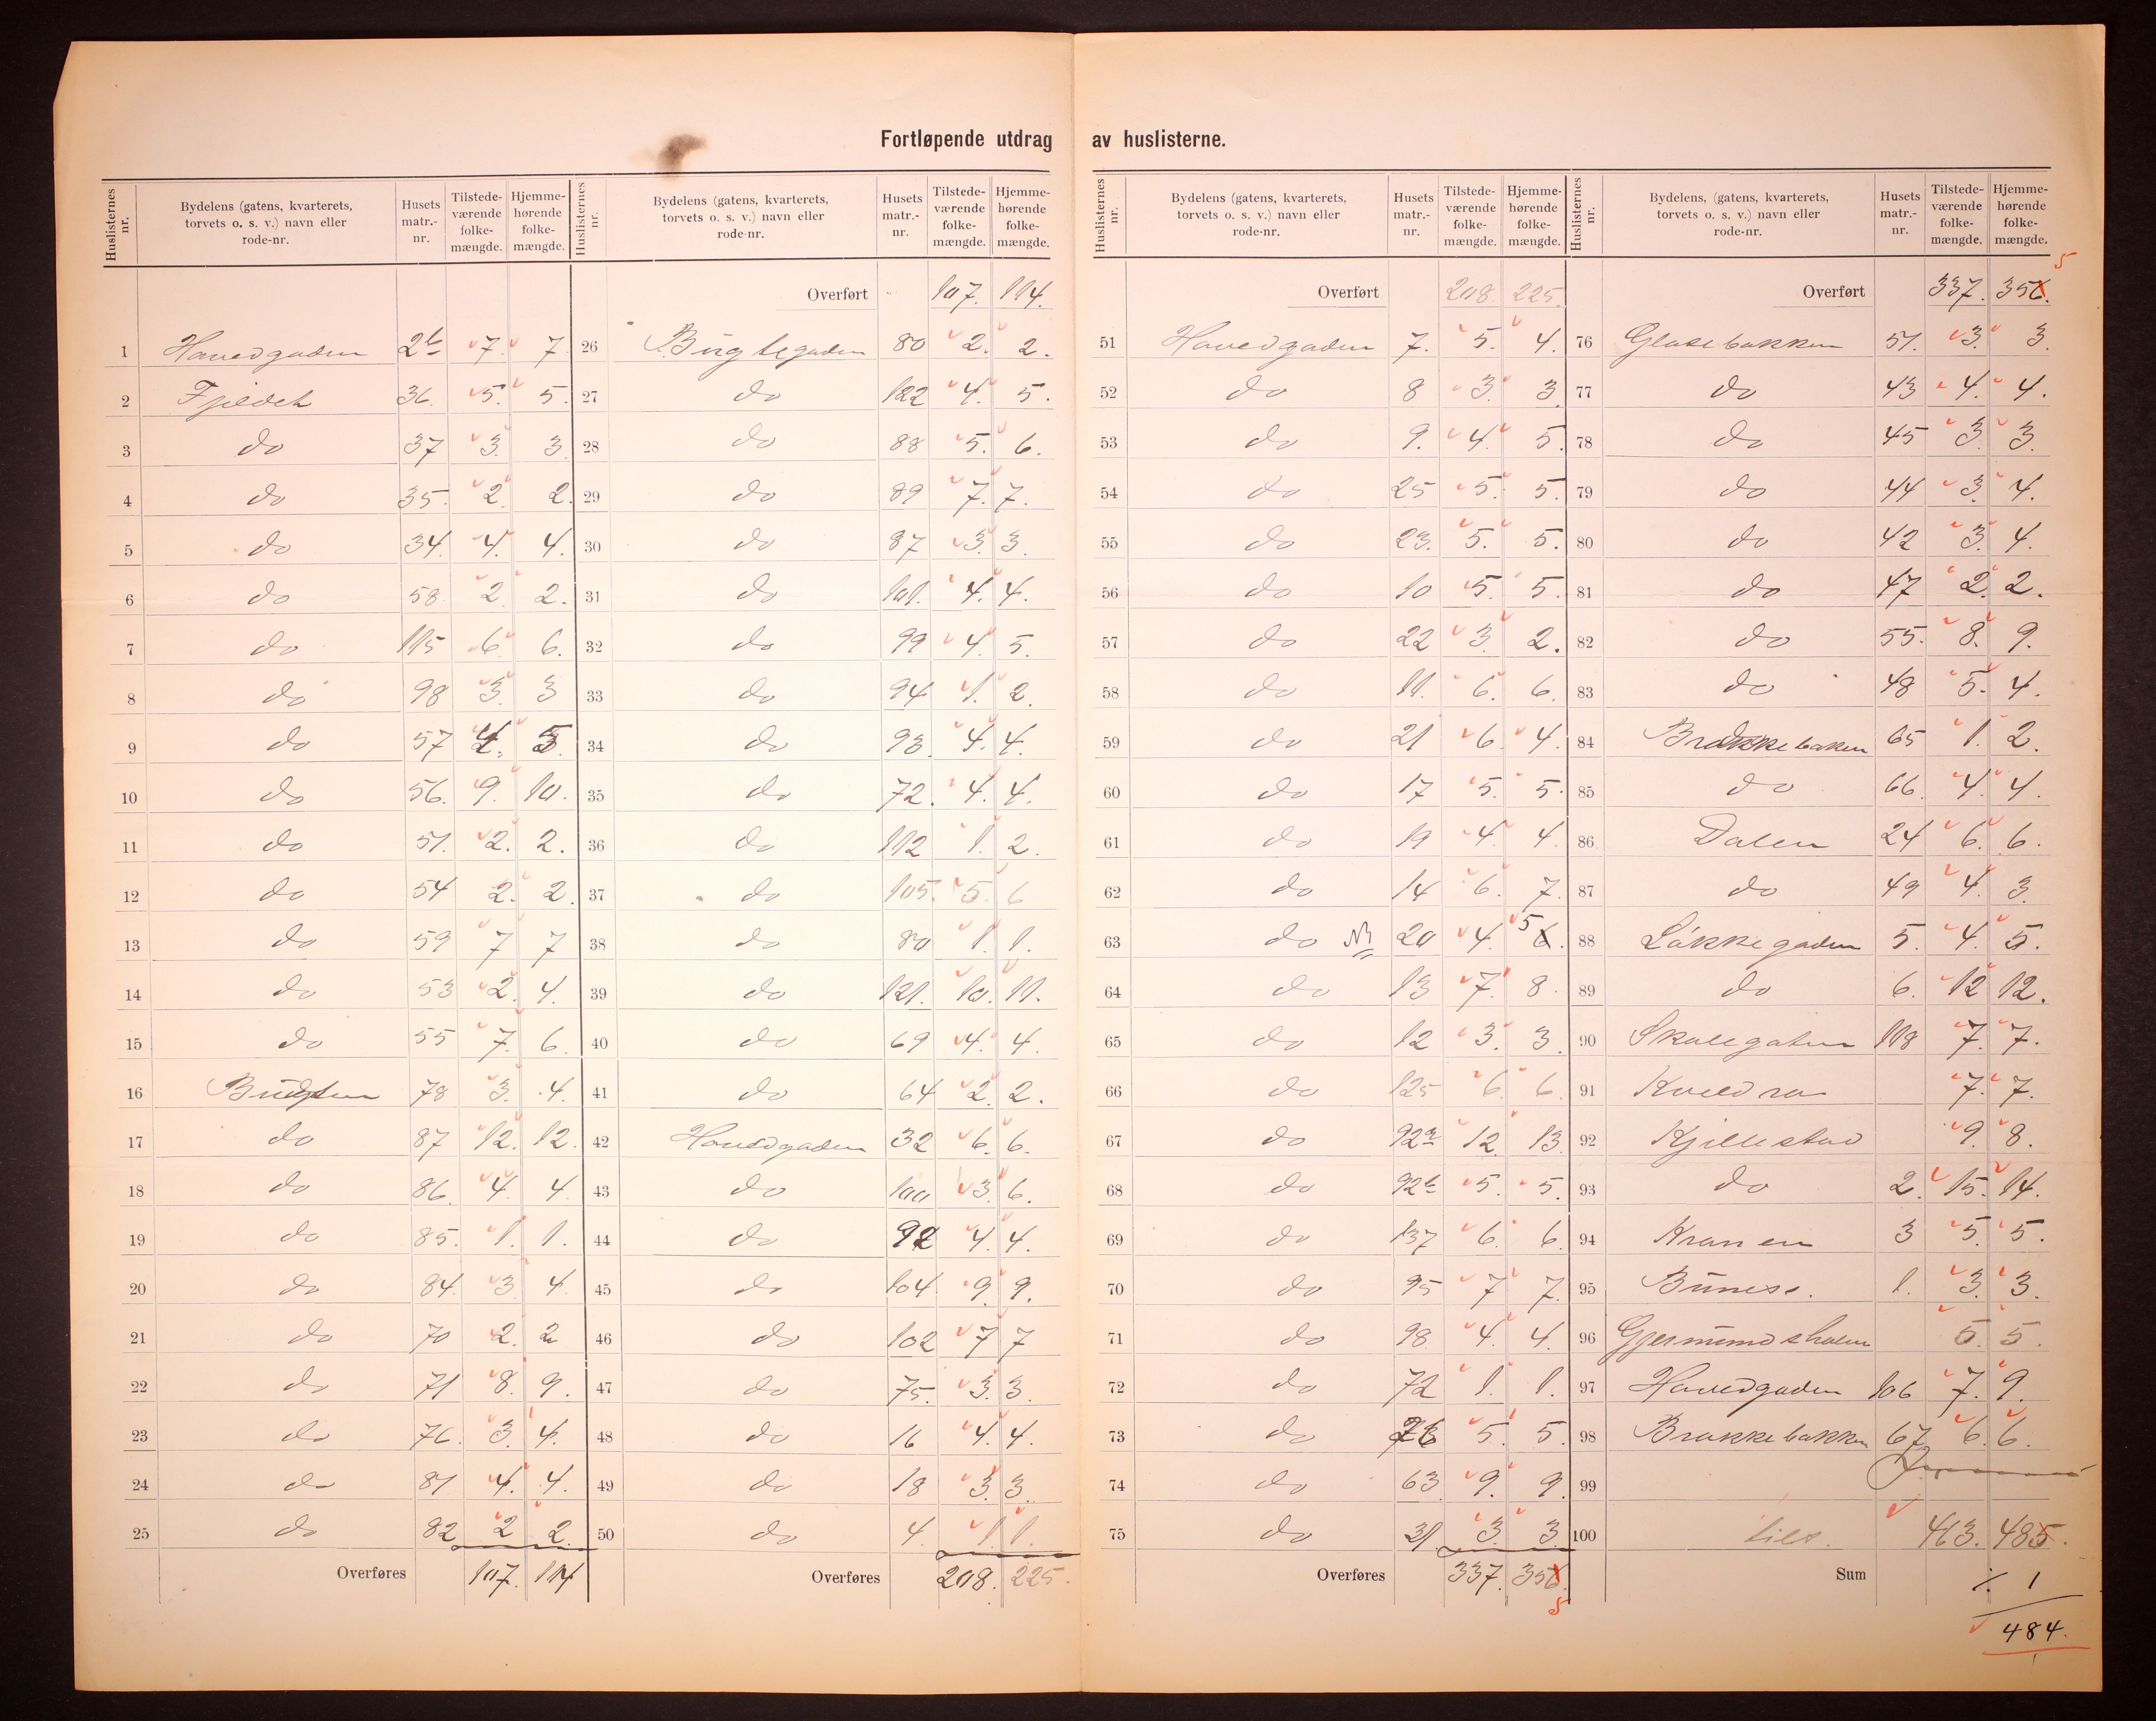 Fortløpende utdrag av huslisterne.
Huslisternes nr. | Bydelens (gatens, kvarterets, torvets o. s. v.) navn eller rode-nr. | Husets matr.-nr. | Tilstede-værende folke-mængde. | Hjemme-hørende folke-mængde.
1 Havedgaden 2b 7. 7
2 Fjeldet 36. 5. 5.
3 do 37 3. 3
4 do 35. 2. 2.
5 do 34. 4. 4.
6 do 58. 2. 2.
7 do 115 6. 6.
8 do 98 3. 3
9 do 57 4. 5.
10 do 56. 9. 10.
11 do 51. 2. 2.
12 do 54 2. 2.
13 do 59 7 7
14 do 53 2. 4.
15 do 55 7. 6.
16 Bugten 78 3. 4.
17 do 87 12. 12.
18 do 86. 4. 4.
19 do 85. 1. 1.
20 do 84. 3 4.
21 do 70 2. 2
22 do 71 8. 9.
23 do 76. 3. 4.
24 do 81 4. 4.
25 do 82 2 2.
Overføres 107. 114
Huslisternes nr. | Bydelens (gatens, kvarterets, torvets o. s. v.) navn eller rode-nr. | Husets matr.-nr. | Tilstede-værende folke-mængde. | Hjemme-hørende folke-mængde.
Overført 107. 114.
26 Bugtegaden 80 2. 2.
27 do 122 4. 5.
28 do 88 5. 6.
29 do 89 7. 7.
30 do 87 3. 3.
31 do 101. 4. 4.
32 do 99 4. 5.
33 do 94 1. 2.
34 do 93. 4. 4.
35 do 72. 4. 4.
36 do 112 1. 2.
37 do 105. 5. 6
38 do 80 1. 1.
39 do 121. 10. 11.
40 do 69 4. 4.
41 do 64 2. 2.
42 Havedgaden 32 6. 6.
43 do 100 3. 6.
44 do 92 4. 4.
45 do 104. 9. 9.
46 do 102 7 7
47 do 75. 3. 3.
48 do 16 4. 4.
49 do 18 3. 3.
50 do 4. 1. 1.
Overføres 208. 225.
Huslisternes nr. | Bydelens (gatens, kvarterets, torvets o. s. v.) navn eller rode-nr. | Husets matr.-nr. | Tilstede-værende folke-mængde. | Hjemme-hørende folke-mængde.
Overført 208. 225.
51 Havedgaden 7. 5. 4.
52 do 8 3. 3.
53 do 9. 4. 5.
54 do 25 5. 5.
55 do 23. 5. 5.
56 do 10 5. 5.
57 do 22 3. 2.
58 do 11. 6. 6.
59 do 21 6. 4.
60 do 17 5. 5.
61 do 19 4. 4.
62 do 14 6. 7.
63 do 20 4. 5 6.
64 do 13 7. 8.
65 do 12 3. 3.
66 do 125 6. 6.
67 do 92a 12. 13.
68 do 92b 5. 5.
69 do 137 6. 6.
70 do 95 7 7.
71 do 98 4. 4.
72 do 72 1. 1.
73 do 5. 5.
74 do 63 9. 9.
75 do 31. 3. 3.
Overføres 337. 356. 5
Huslisternes nr. | Bydelens, (gatens, kvarterets, torvets o. s. v.) navn eller rode-nr. | Husets matr.-nr. | Tilstede-værende folke-mængde. | Hjemme-hørende folke-mængde.
Overført 337. 356. 5
76 Glasebakken 51. 3. 3.
77 do 43 4. 4.
78 do 45 3. 3.
79 do 44 3. 4.
80 do 42 3. 4.
81 do 47 2. 2.
82 do 55. 8. 9.
83 do 48 5. 4.
84 Brækkebaken 65 1. 2.
85 do 66. 4. 4.
86 Dalen 24 6. 6.
87 do 49 4. 3.
88 Løkkegaden 5. 4. 5.
89 do 6. 12 12.
90 Skolegaten 108 7. 7.
91 7. 7.
92 Kjellestad 9. 8.
93 do 2. 15. 14.
94 Kranen 3 5. 5.
95 1. 3. 3.
96 Gjermundsholmen 5. 5.
97 Havedgaden 106 7. 9.
98 Brækkebakken 67 6. 6.
99
100 tils. 463. 485.
Sum ÷ 1
484.